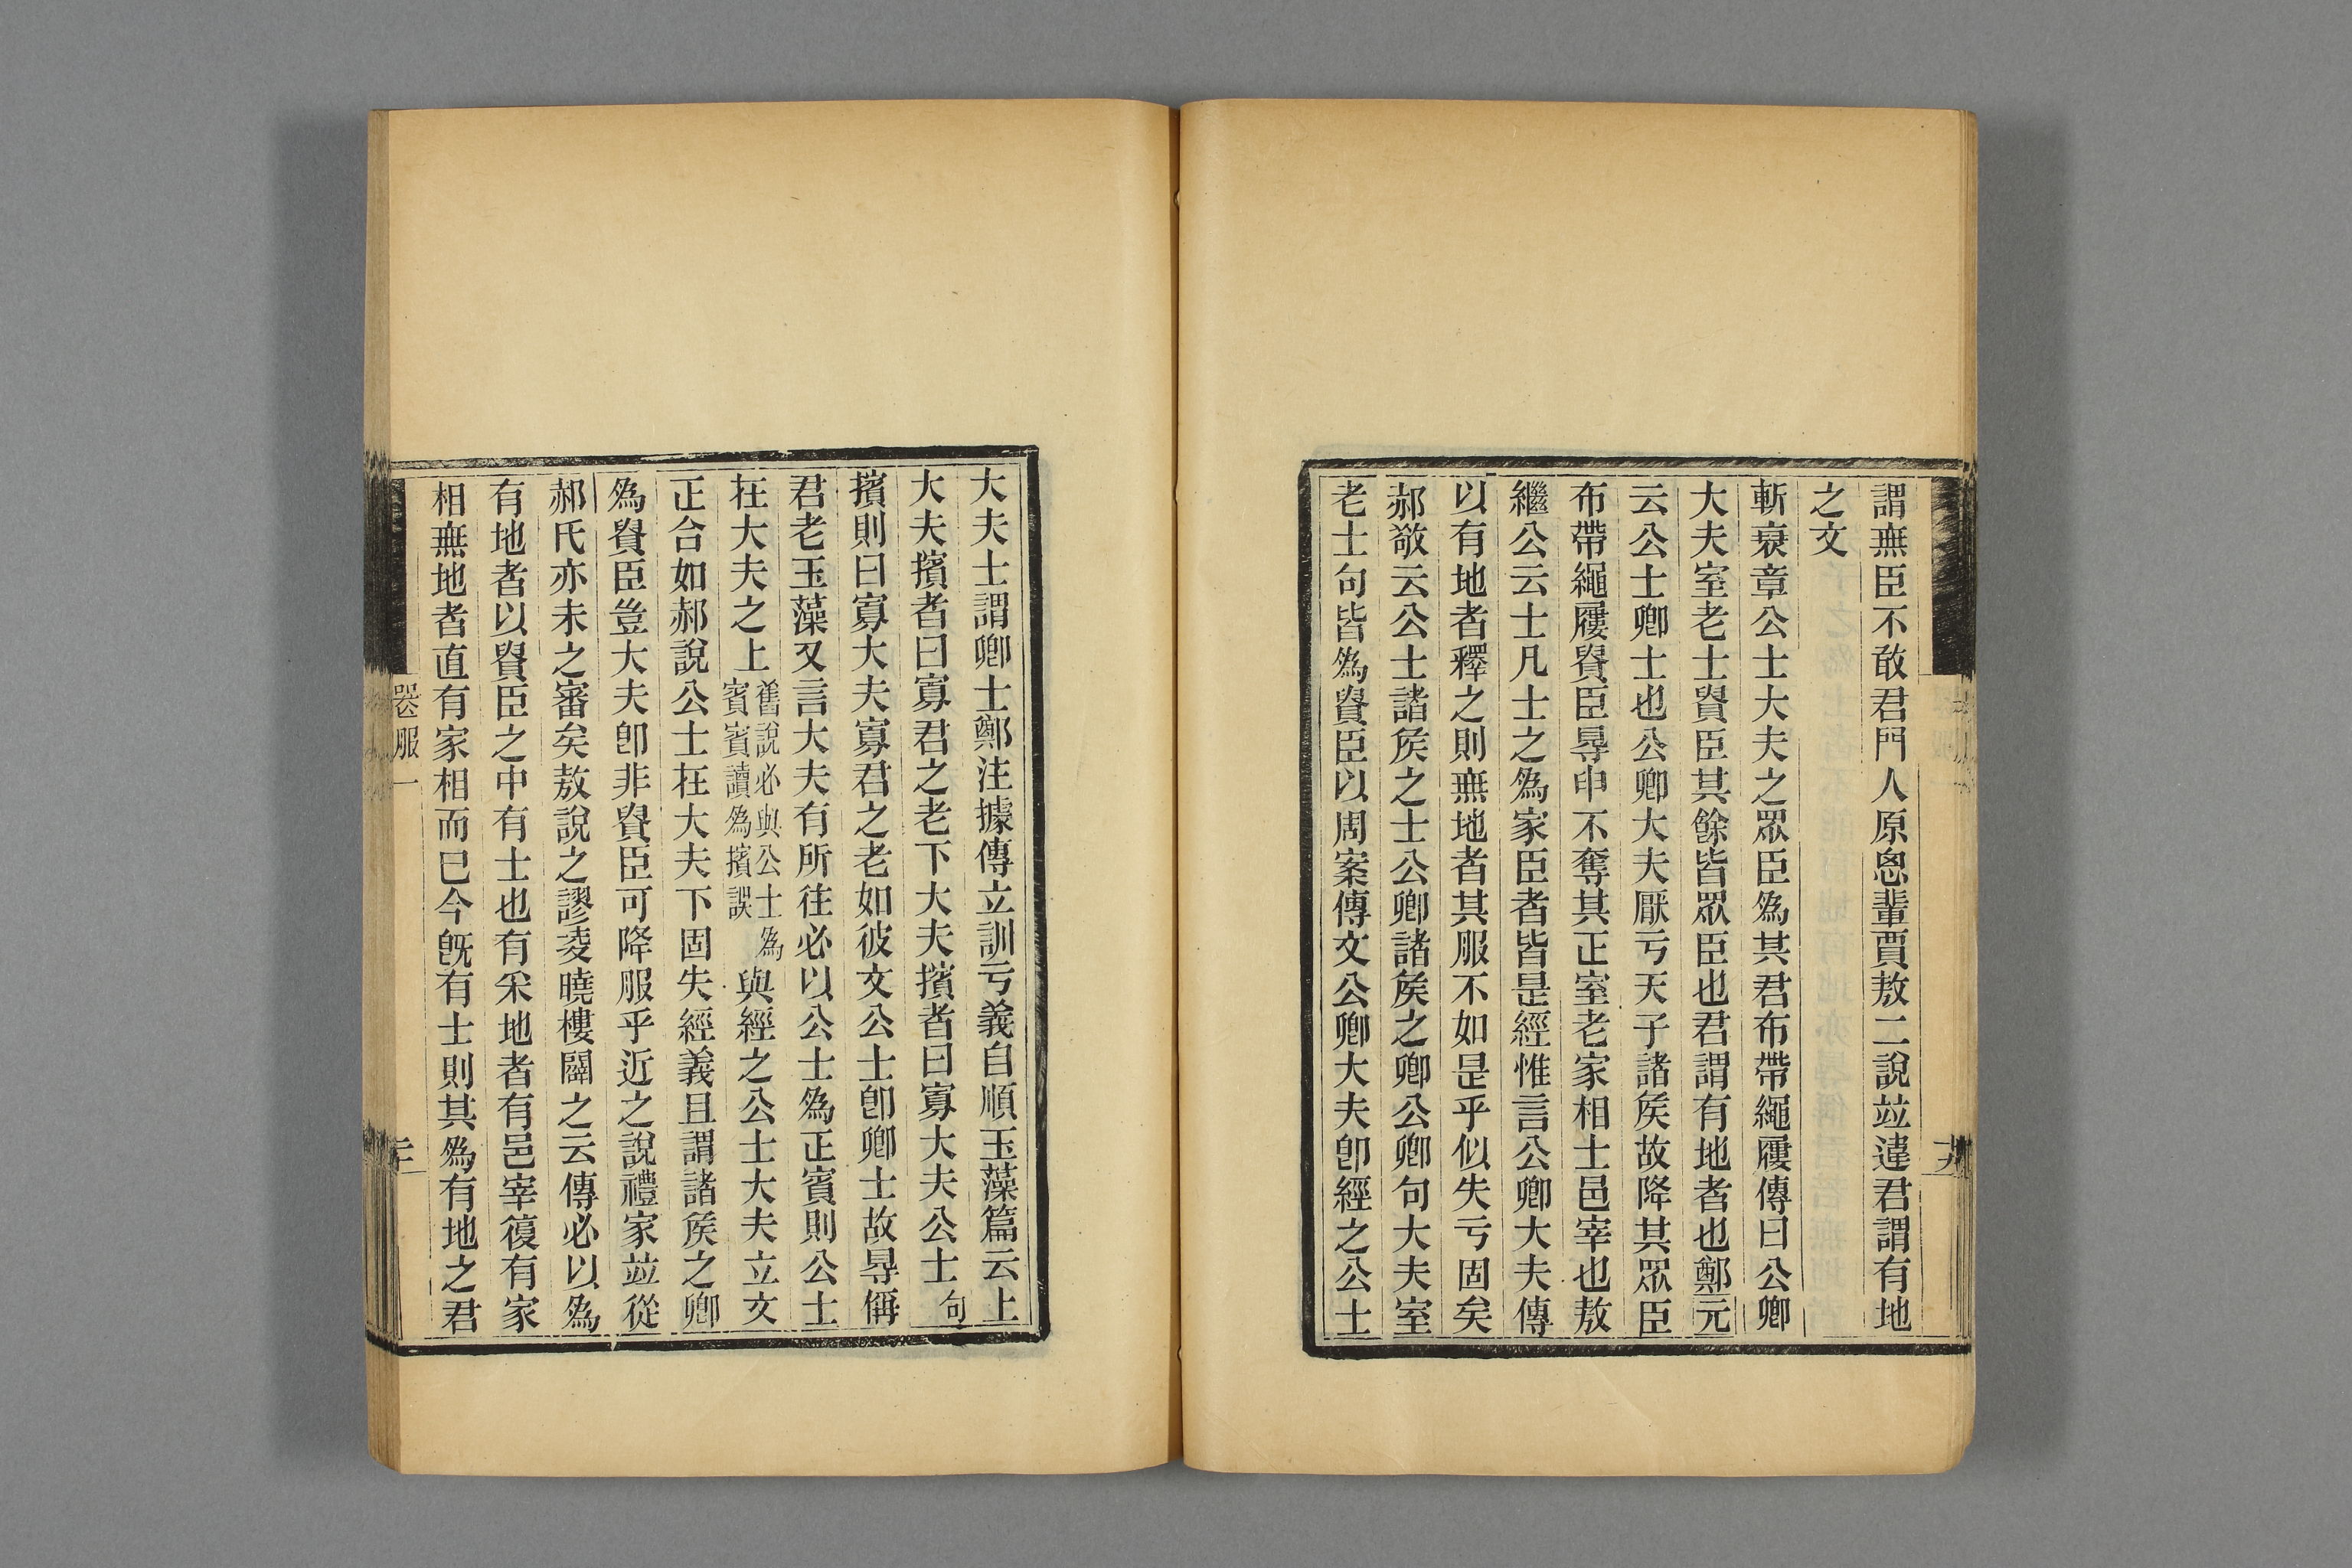 謂無臣不敢君門人原恖輩賈敖二說竝違君謂有地
之文
斬衰章公士大夫之眾臣爲其君布帶繩屨傳曰公卿
大夫室老士貴臣其餘皆眾臣也君謂有地者也鄭元
云公士卿士也公卿大夫厭亏天子諸矦故降其眾臣
布帶繩屨貴臣㝵申不奪其正室老家相士邑宰也敖
繼公云士凡士之爲家臣者皆是經惟言公卿大夫傳
以有地者釋之則無地者其服不如是乎似失亏固矣
郝敬云公士諸矦之士公卿諸矦之卿公卿句大夫室
老士句皆爲貴臣以周案傳文公卿大夫卽經之公士
大夫士謂卿士鄭注據傳立訓亏義自順玉藻篇云上
大夫擯者曰寡君之老下大夫擯者曰寡大夫公士句
擯則曰寡大夫寡君之老如彼文公士卽卿士故㝵偁
君老玉藻又言大夫有所往必以公士爲正賓則公士
在大夫之上舊說必與公士爲賓賓讀爲擯誤與經之公士大夫立文
正合如郝說公士在大夫下固失經義且謂諸矦之卿
爲貴臣豈大夫卽非貴臣可降服乎近之說禮家竝從
郝氏亦未之審矣敖說之謬凌曉樓闢之云傳必以爲
有地者以貴臣之中有士也有采地者有邑宰復有家
相無地者直有家相而已今旣有士則其爲有地之君
喪服一